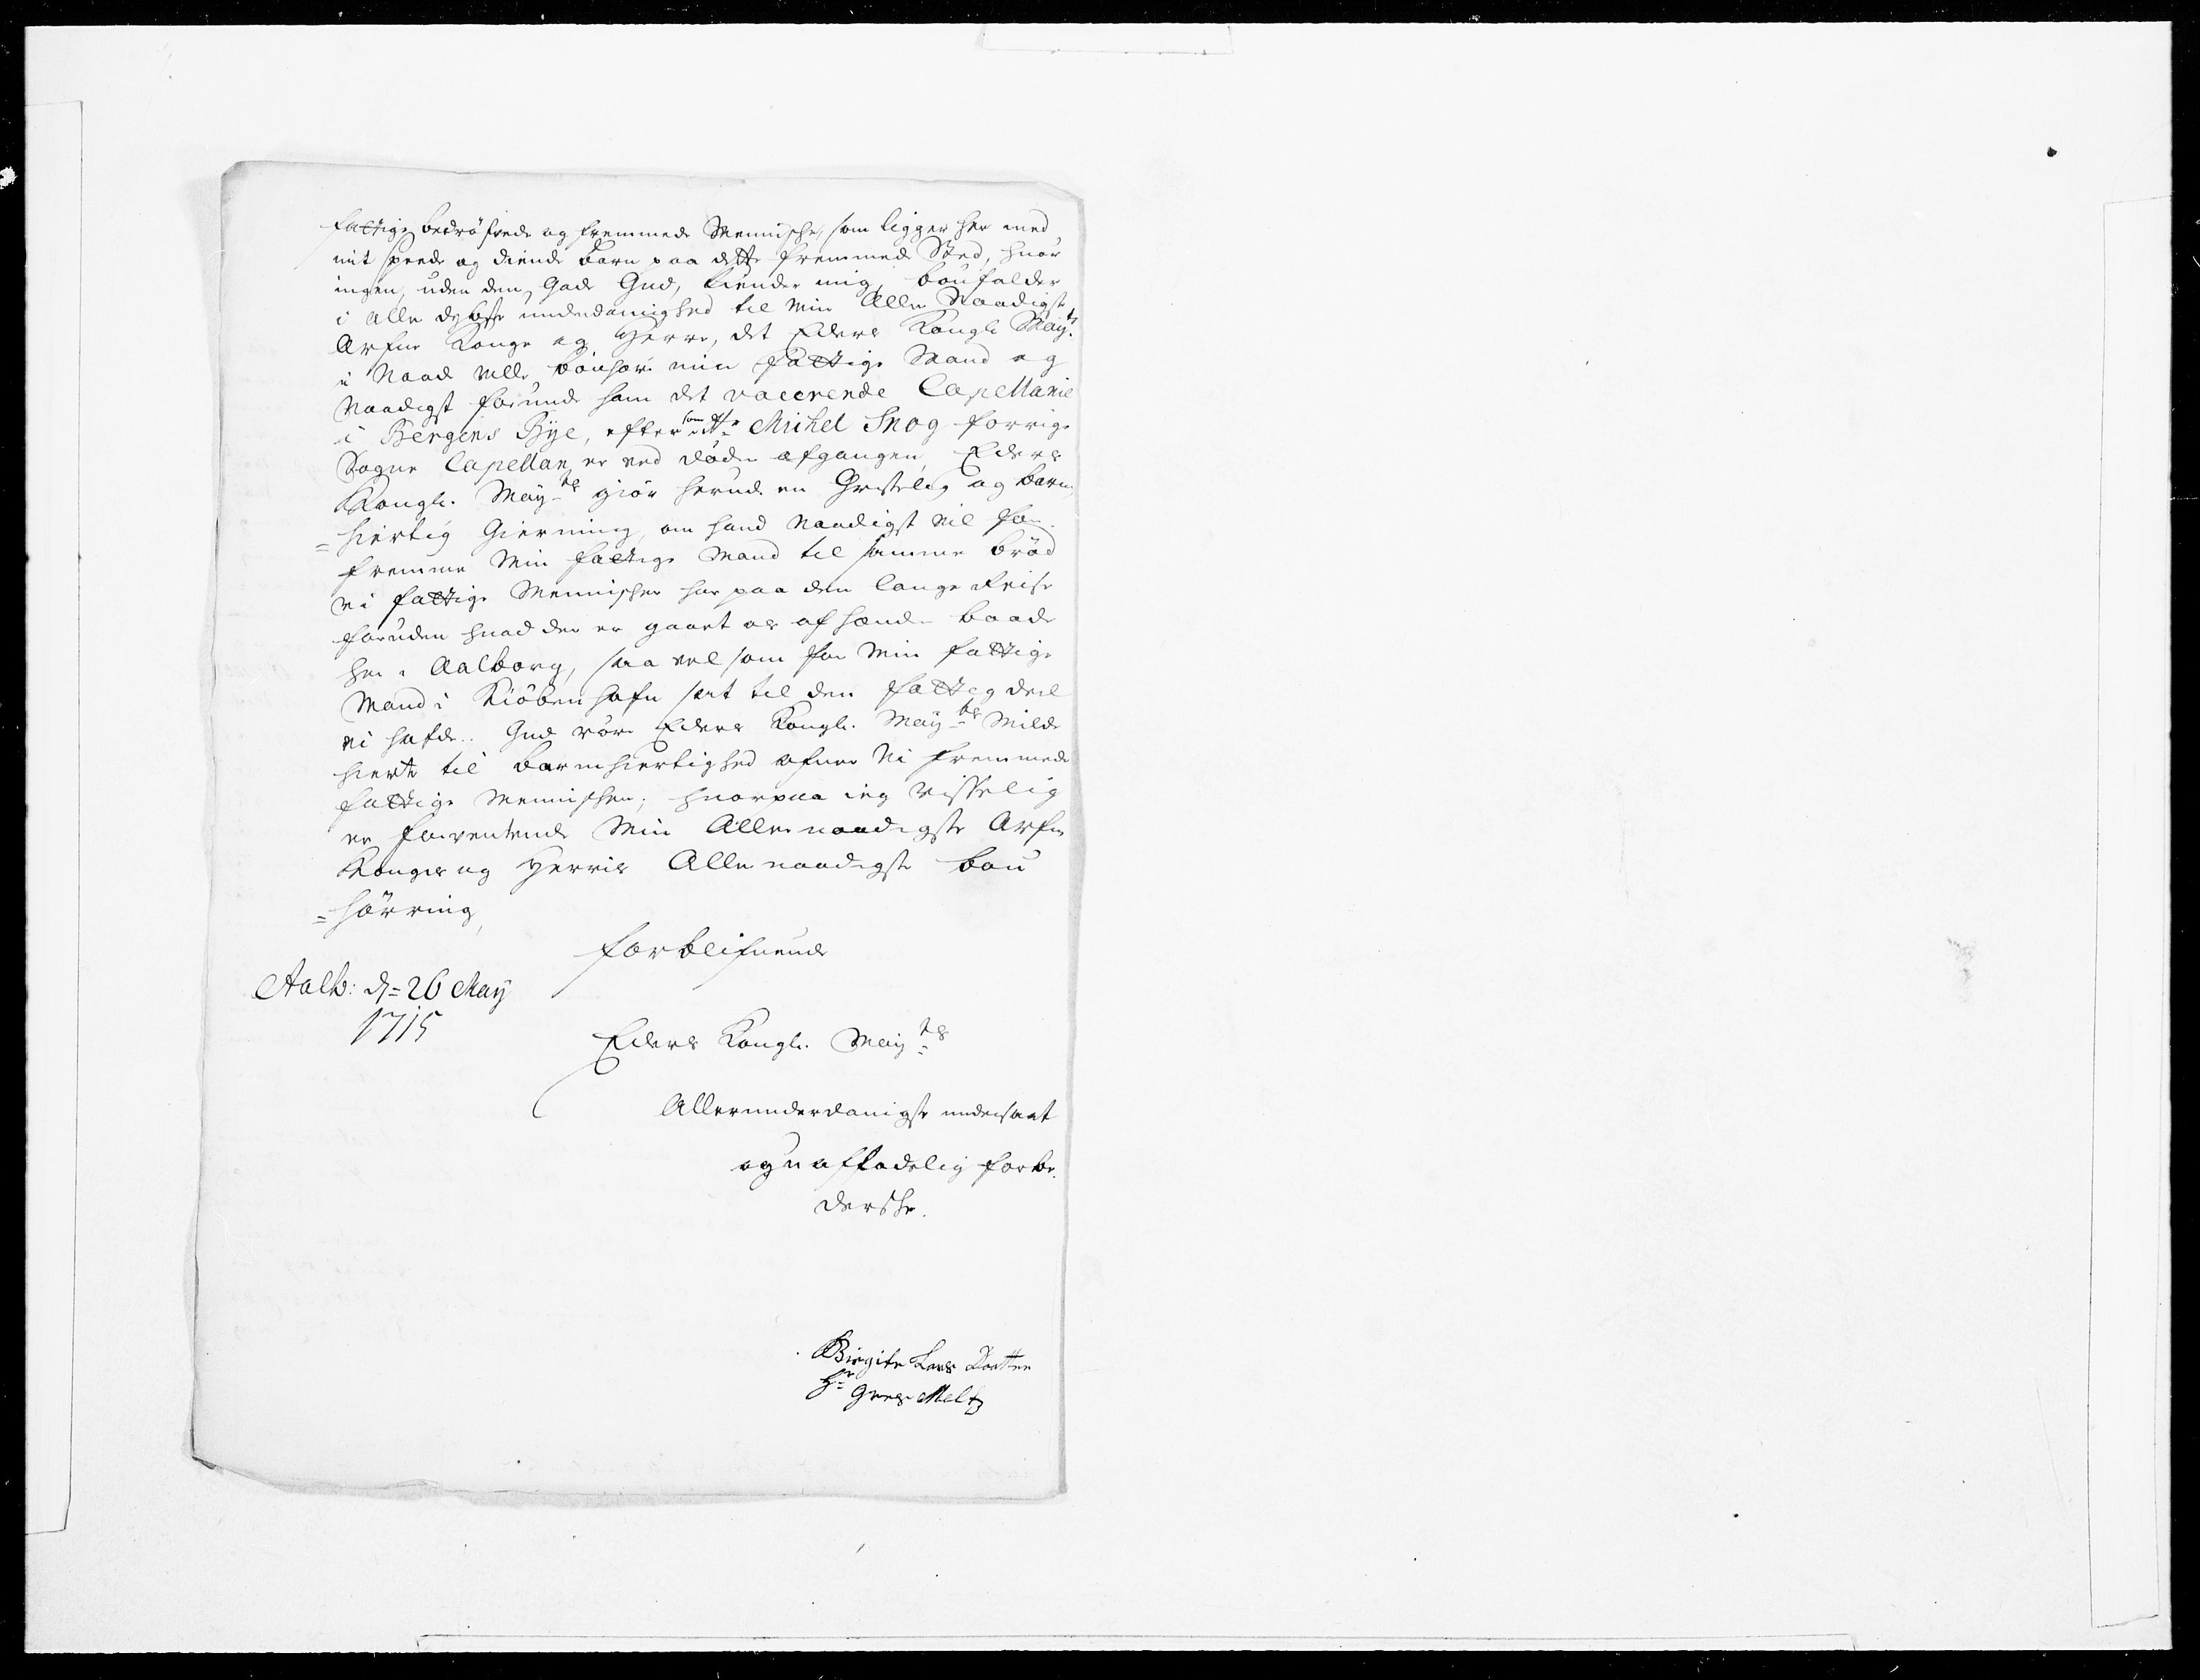 fattige bedröfvede og fremmede Menniske, som ligger her med
mit spede og diende barn paa dette fremmede Sted, hvor
ingen, uden den gode Gud, kiender mig, bönfalder
i aller dybeste underdanighed til min Aller Naadigste
Arfve Konge og Herre, det Eders Kongl: May:ts
i Naade ville bönhöre min fattige Mand og
Naadigst forunde ham det vacerende Capellanie
i Bergens Bye, eftersom Hr Michel Snog forrige
Sogne Capellan, er ved döden afgangen, Eders
Kongl. May=ts giör herud: en Gristelig og barm
=hiertig Gierning, om hand Naadigst vil for-
fremme Min fattige Mand til samme bröd
vi fattige Mennisker har paa den lange Reise
foruden hvad der er gaaet os af hænde baade
her i Aalborg, saa vel som for Min fattige
Mand i Kiöbenhafn sat til den fattig deel
vi hafde. Gud röre Eders Kongl. May=ts Milde
hierte til barmhiertighed ofver vi fremmede
fattige Mennisker; hvorpaa ieg visselig
er forventende Min Allernaadigste Arfve
Konges og Herris Allernaadigste bön
=hörring,
forblifvende
Aalb: d=26 May
1715
Eders Kongl. May=ts
Allerunderdanigste undersaat
og uafladelig forbe-
derske.
Birgite Lars Daatter
Hr Gres Meltz